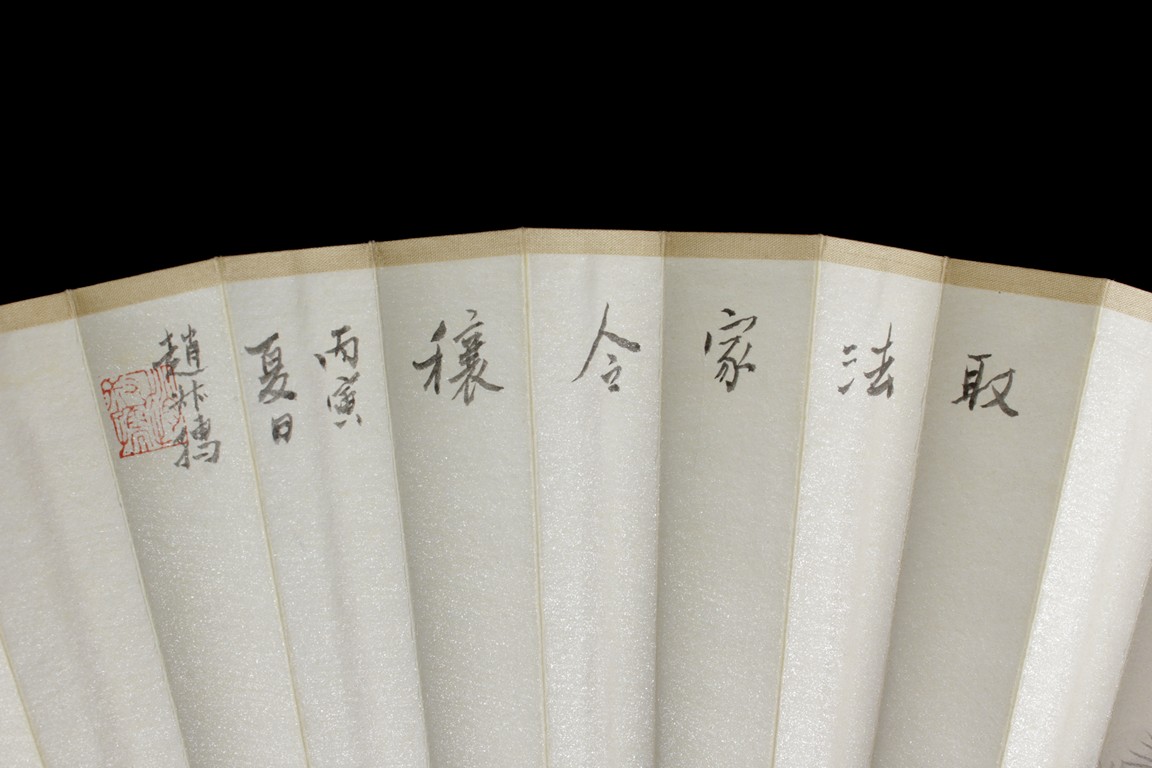 取法家令穰
丙寅
夏日
趙尗孺